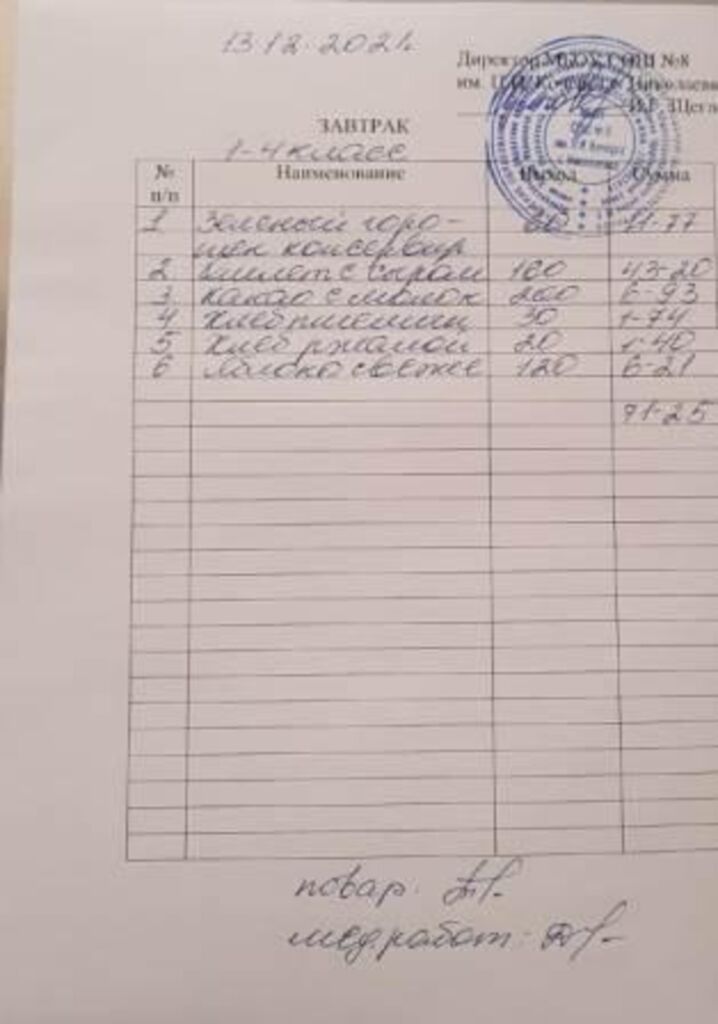 13.12.2021г.
Директор МБОУ СОШ №8
ЗАВТРАК
1-4 класс
№ п/п Наименование Выход Сумма
1 Зеленый горо- 60 11-77
шек консервир
2 Омлет с сыром 160 43-20
3 Какао с молок 200 6-93
4 Хлеб пшенич 30 1-74
5 Хлеб ржаной 20 1-40
6 Яблоко свежее 120 6-21
71-25
повар.
мед.работ.